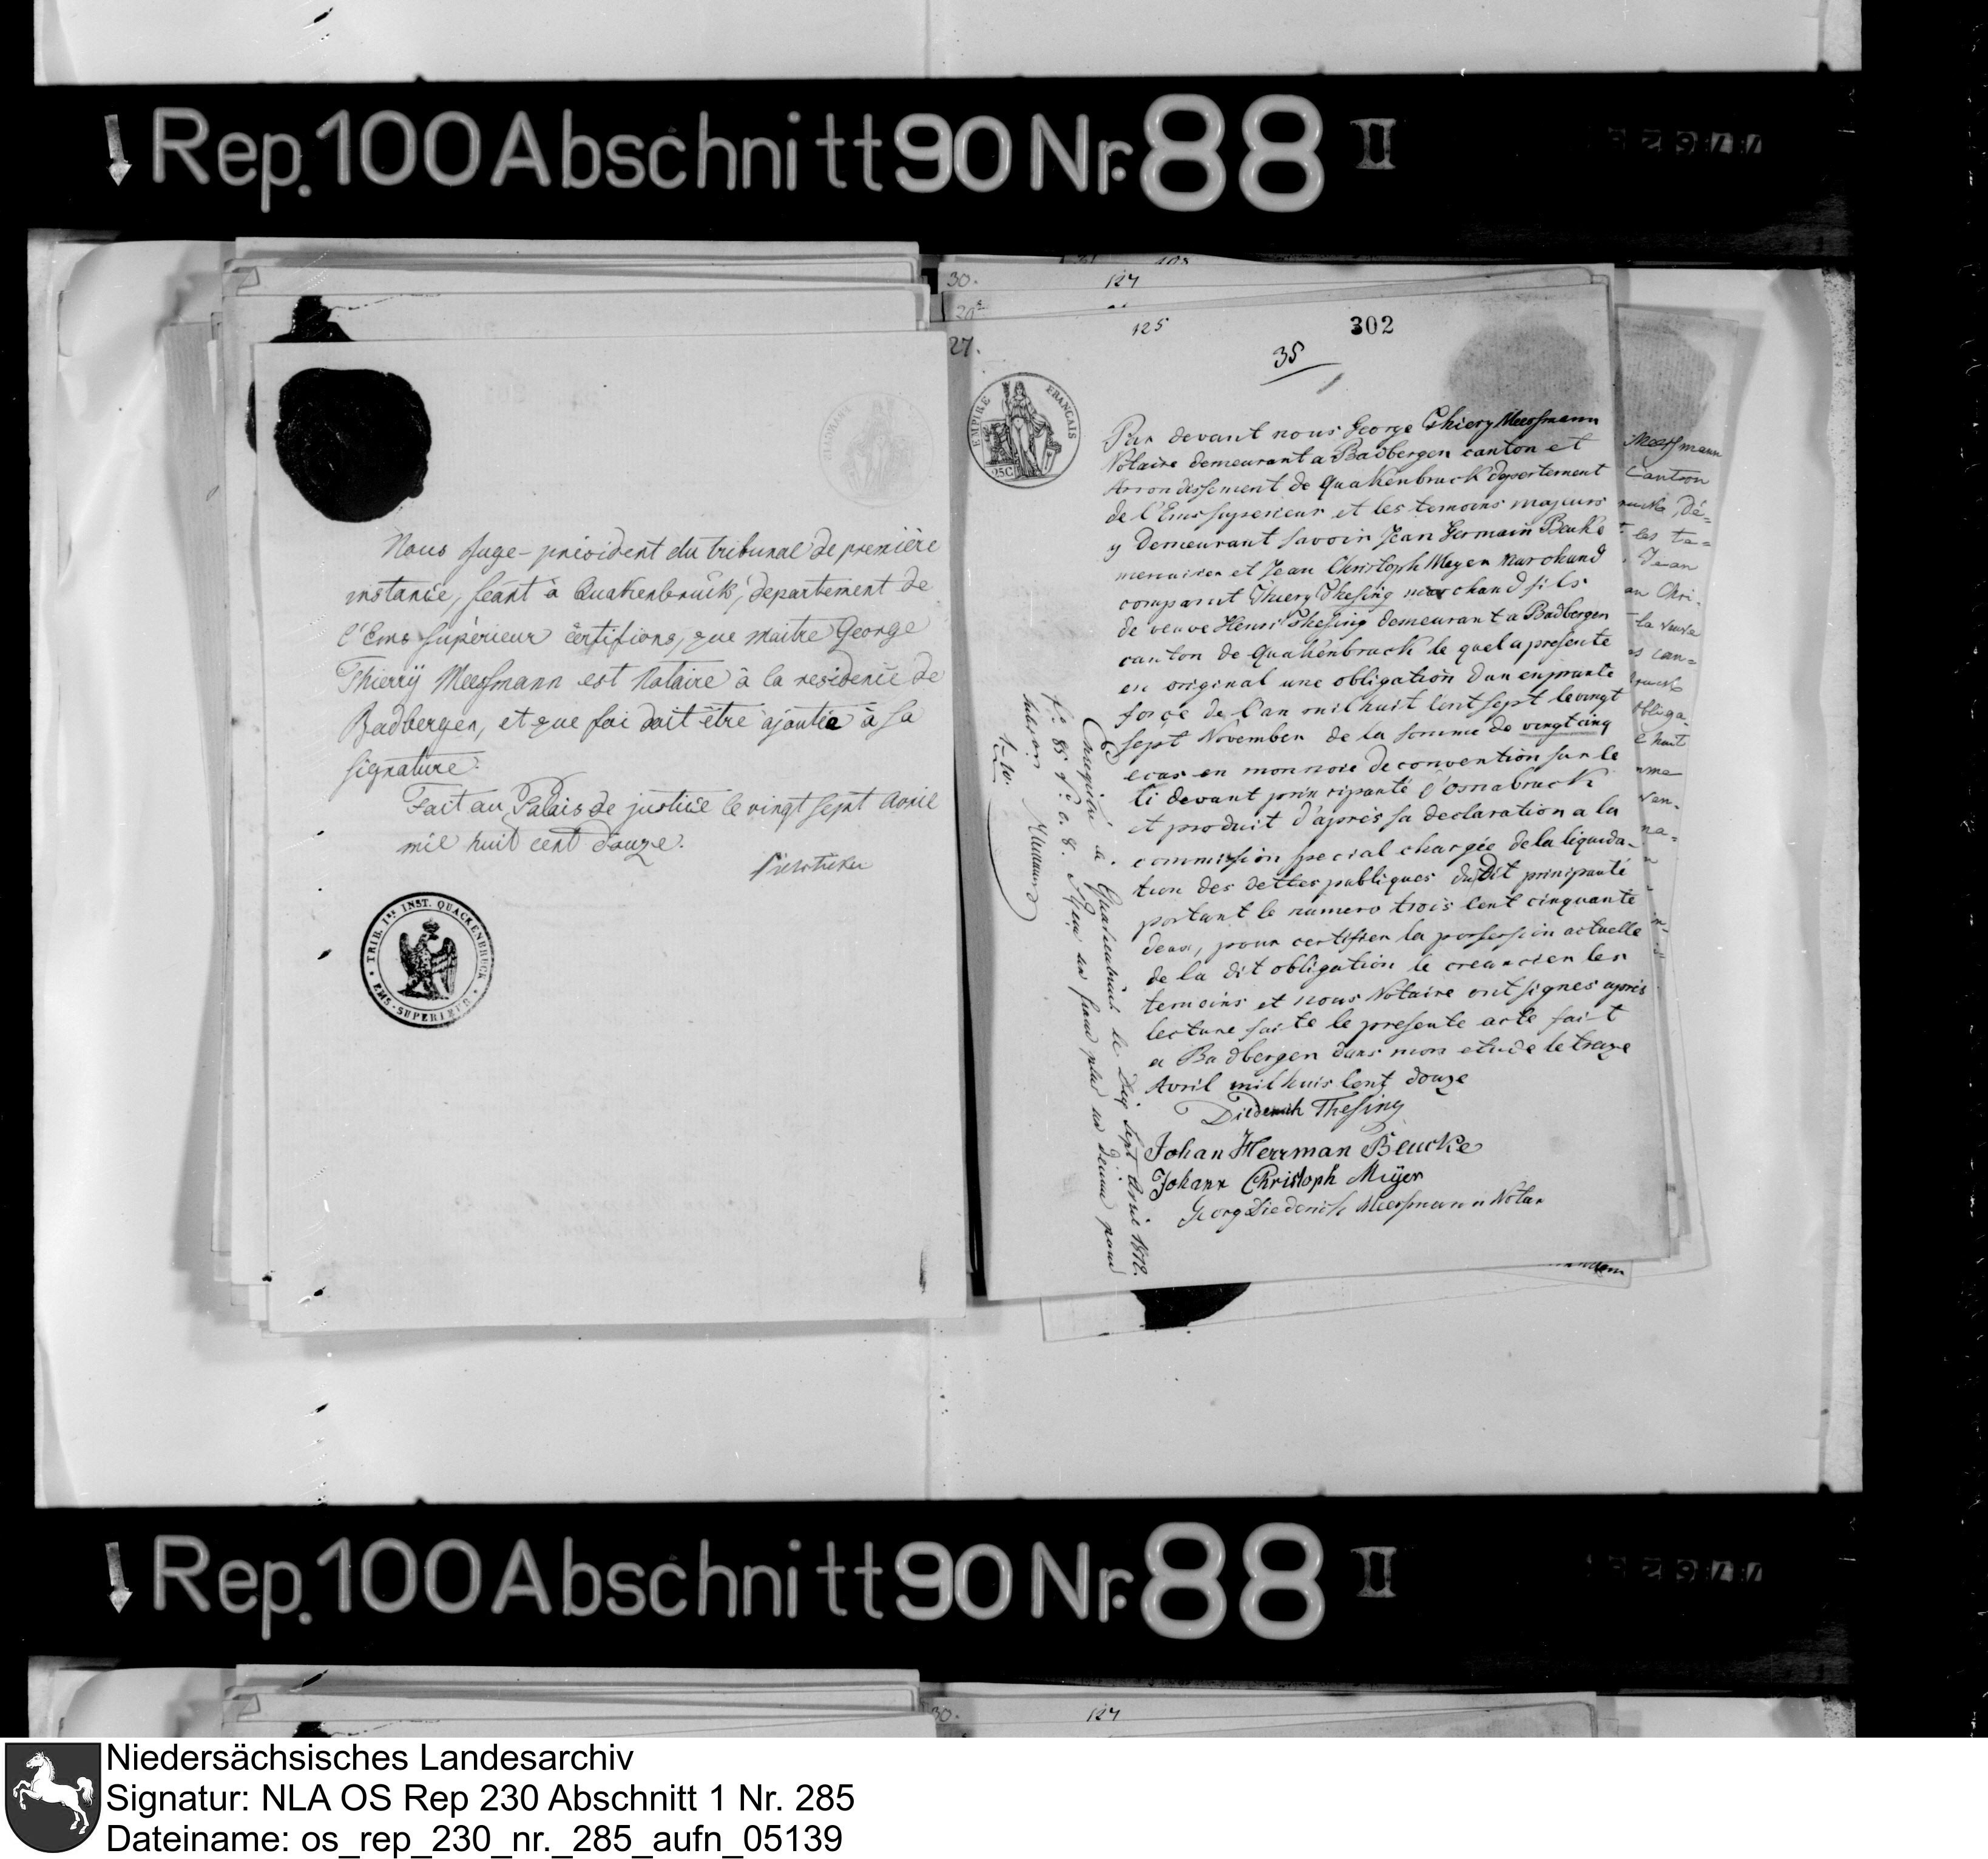 Rep. 100 Abschnitt 90 Nr. 88 II
30. 127
125
302
27.
35
EMPIRE FRANÇAIS
25C
Nous Juge-président du tribunal de première
instance, séant à Quakenbrück, departement de
l'Ems Supérieur certifions, que maitre George
Thierry Meessmann est Notaire à la residence de
Badbergen, et que foi doit être ajoutée à Sa
signature.
Fait au Palais de justice le vingt sept Avril
mil huit cent douze.
TRIB. 1ER INST. QUACKENBRUCK
EMS-SUPERIEUR
Par devant nous George Thiery Meessmann
Notaire demeurant a Badbergen canton et
Arrondissement de Quakenbruck departement
de l'Ems superieur et les temoins majeurs
y demeurant savoir Jean Germain Beuke
menuisier et Jean Christoph Meyer Marchand
comparut Thiery Thesing marchand fils
de veuve Henri Thesing demeurant a Badbergen
canton de Quakenbruck le quel a presente
en original une obligation d'un enprunte
force de l'an mil huit Cent sept le vingt
sept November de la somme de vingt cinq
ecus en monnoie de convention sur le
ci devant principauté d'Osnabruck
et produit d'après sa declaration a la
commission special chargée de la liquida-
tion des dettes publiques dudit principauté
portant le numero trois Cent cinquante
deux, pour certifier la possession actuelle
de la dit obligation le creancier les
temoins et nous Notaire ont signes après
lecture faite le presente acte fait
a Badbergen dans mon etude le treize
Avril mil huis Cent douze
Diederich Thesing
Johan Herrman Beucke
Johann Christoph Meÿer
Georg Diederich Meessmann Notar
Enregistré à Quakenbrück le Dix Sept Avril 1812.
f° 85 v° c. 8. Reçu un franc plus un décime pour
1-10.
Meessmann
Canton
les te=
Jean
an Chri-
la veuve
can=
obliga-
Rep. 100 Abschnitt 90 Nr. 88 II
30. 127
Niedersächsisches Landesarchiv
Signatur: NLA OS Rep 230 Abschnitt 1 Nr. 285
Dateiname: os_rep_230_nr._285_aufn_05139